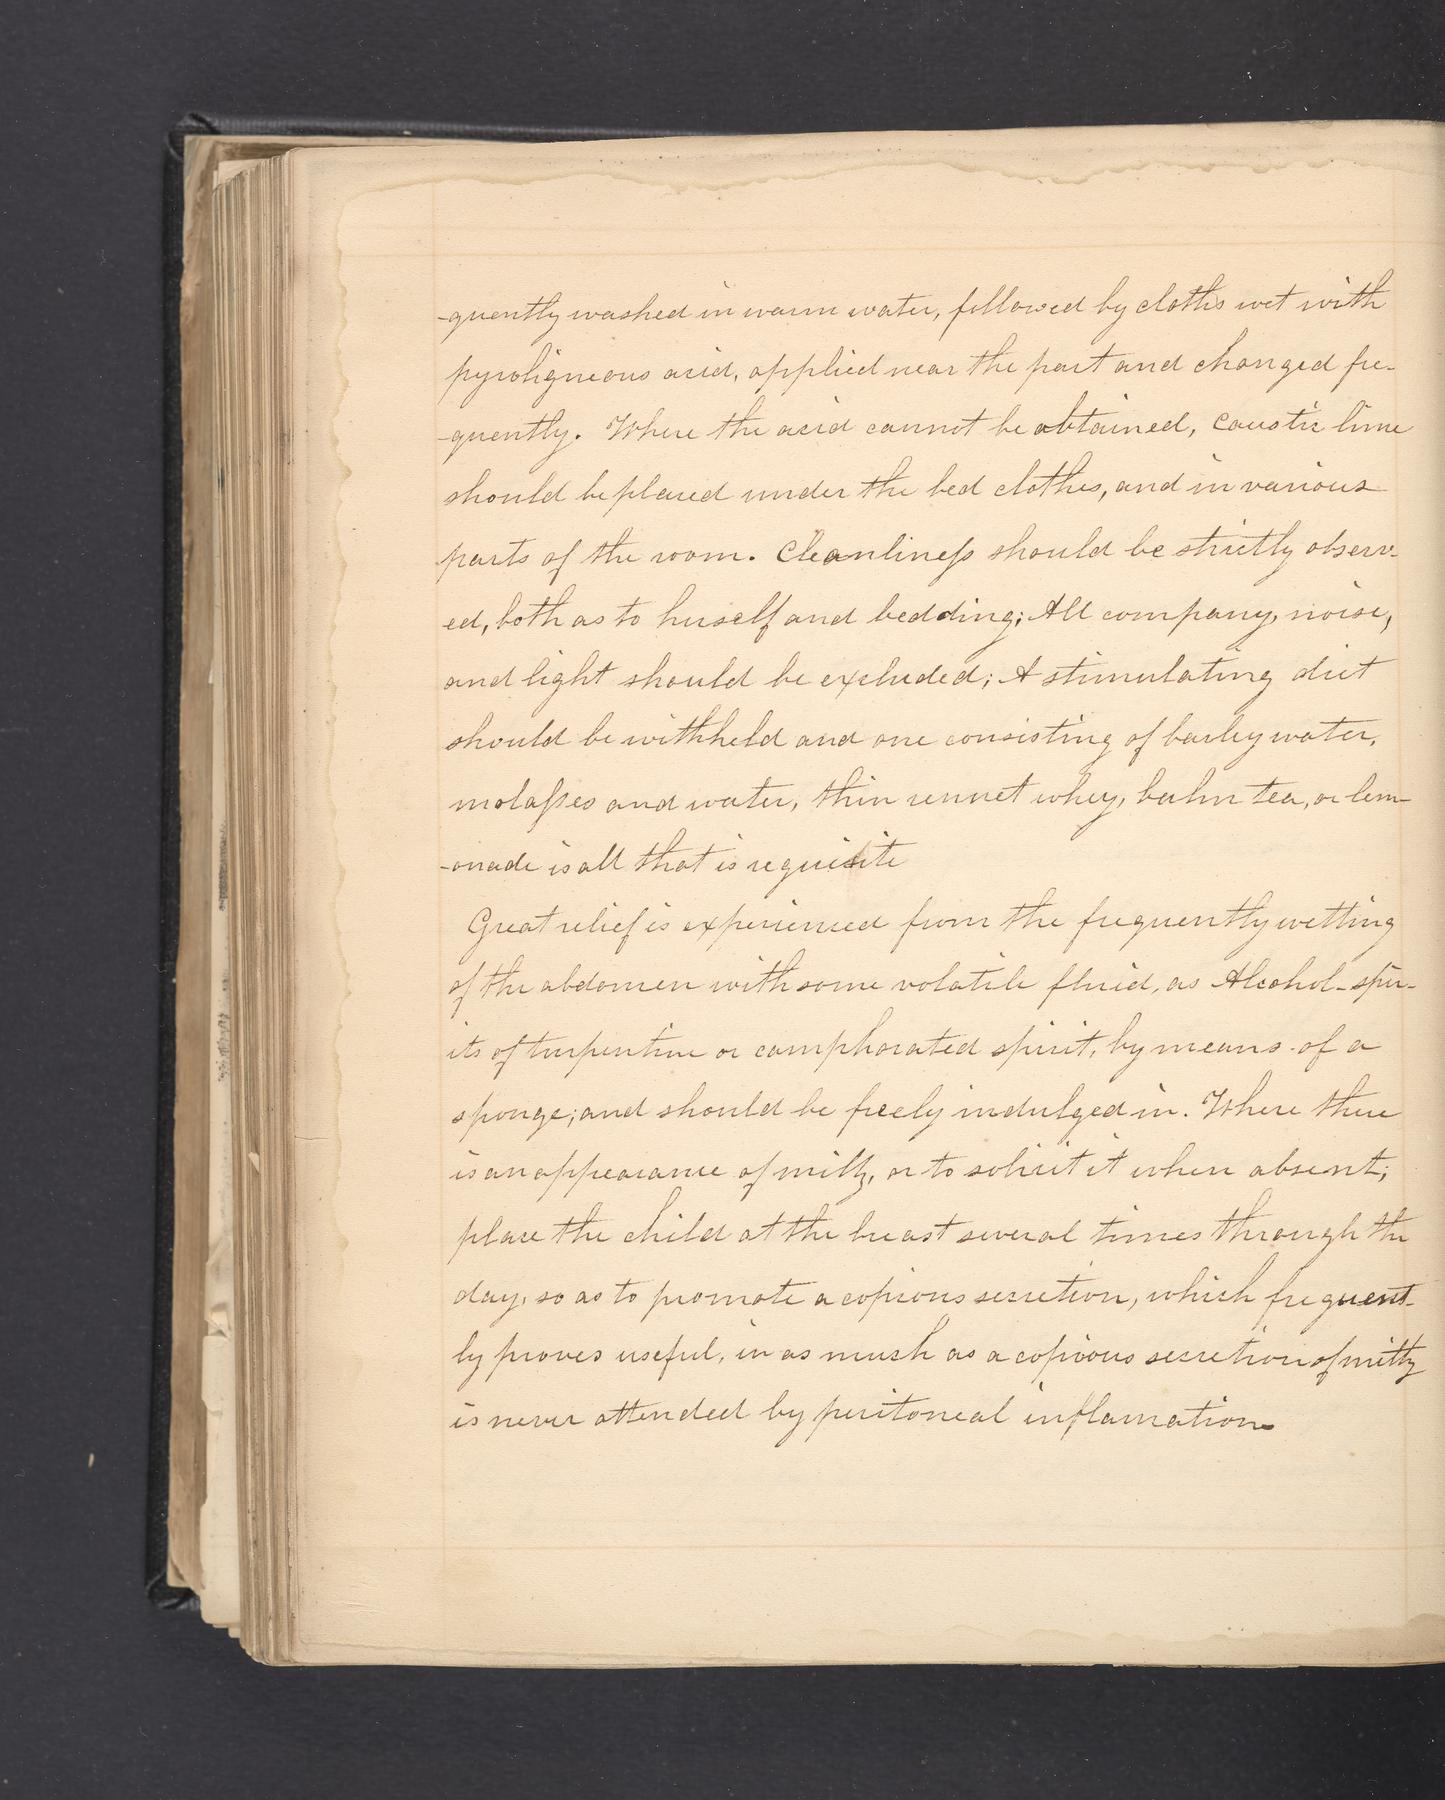 -quently washed in warm water, followed by cloths wet with
pyroligneous acid, applied near the part and changed fre-
-quently. Where the acid cannot be obtained, caustic lime
should be placed under the bed clothes, and in various
parts of the room. Cleanlineſs should be strictly observ-
ed, both as to herself and bedding; All company, noise,
and light should be excluded; A stimulating diet
should be withheld and one consisting of barley water,
molaſses and water, thin rennet whey, balm tea, or lem-
-onade is all that is requisite
Great relief is experienced from the frequently wetting
of the abdomen with some volatile fluid, as Alcohol - spir-
its of turpentine or camphorated spirit, by means of a
sponge; and should be freely indulged in. Where there
is an appearance of milk, or to solicit it when absent;
place the child at the breast several times through the
day, so as to promote a copious secretion, which frequent-
ly proves useful, in as much as a copious secretion of milk
is never attended by peritoneal inflamation.